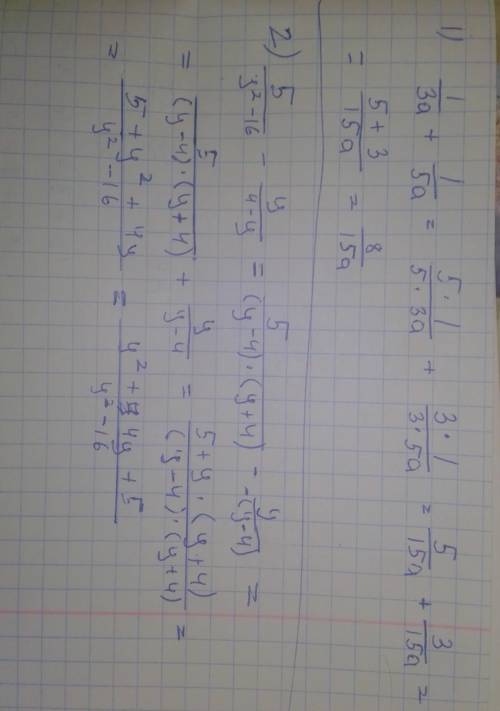 1) 1/3a + 1/5a = 5·1/5·3a + 3·1/3·5a = 5/15a + 3/15a =
= 5+3/15a = 8/15a
2) 5/y²-16 - y/4-y = 5/(y-4)·(y+4) - y/-(y-4) =
= 5/(y-4)·(y+4) + y/y-4 = 5+y·(y+4)/(y-4)·(y+4) =
= 5+y²+4y/y²-16 = y²+4y+5/y²-16